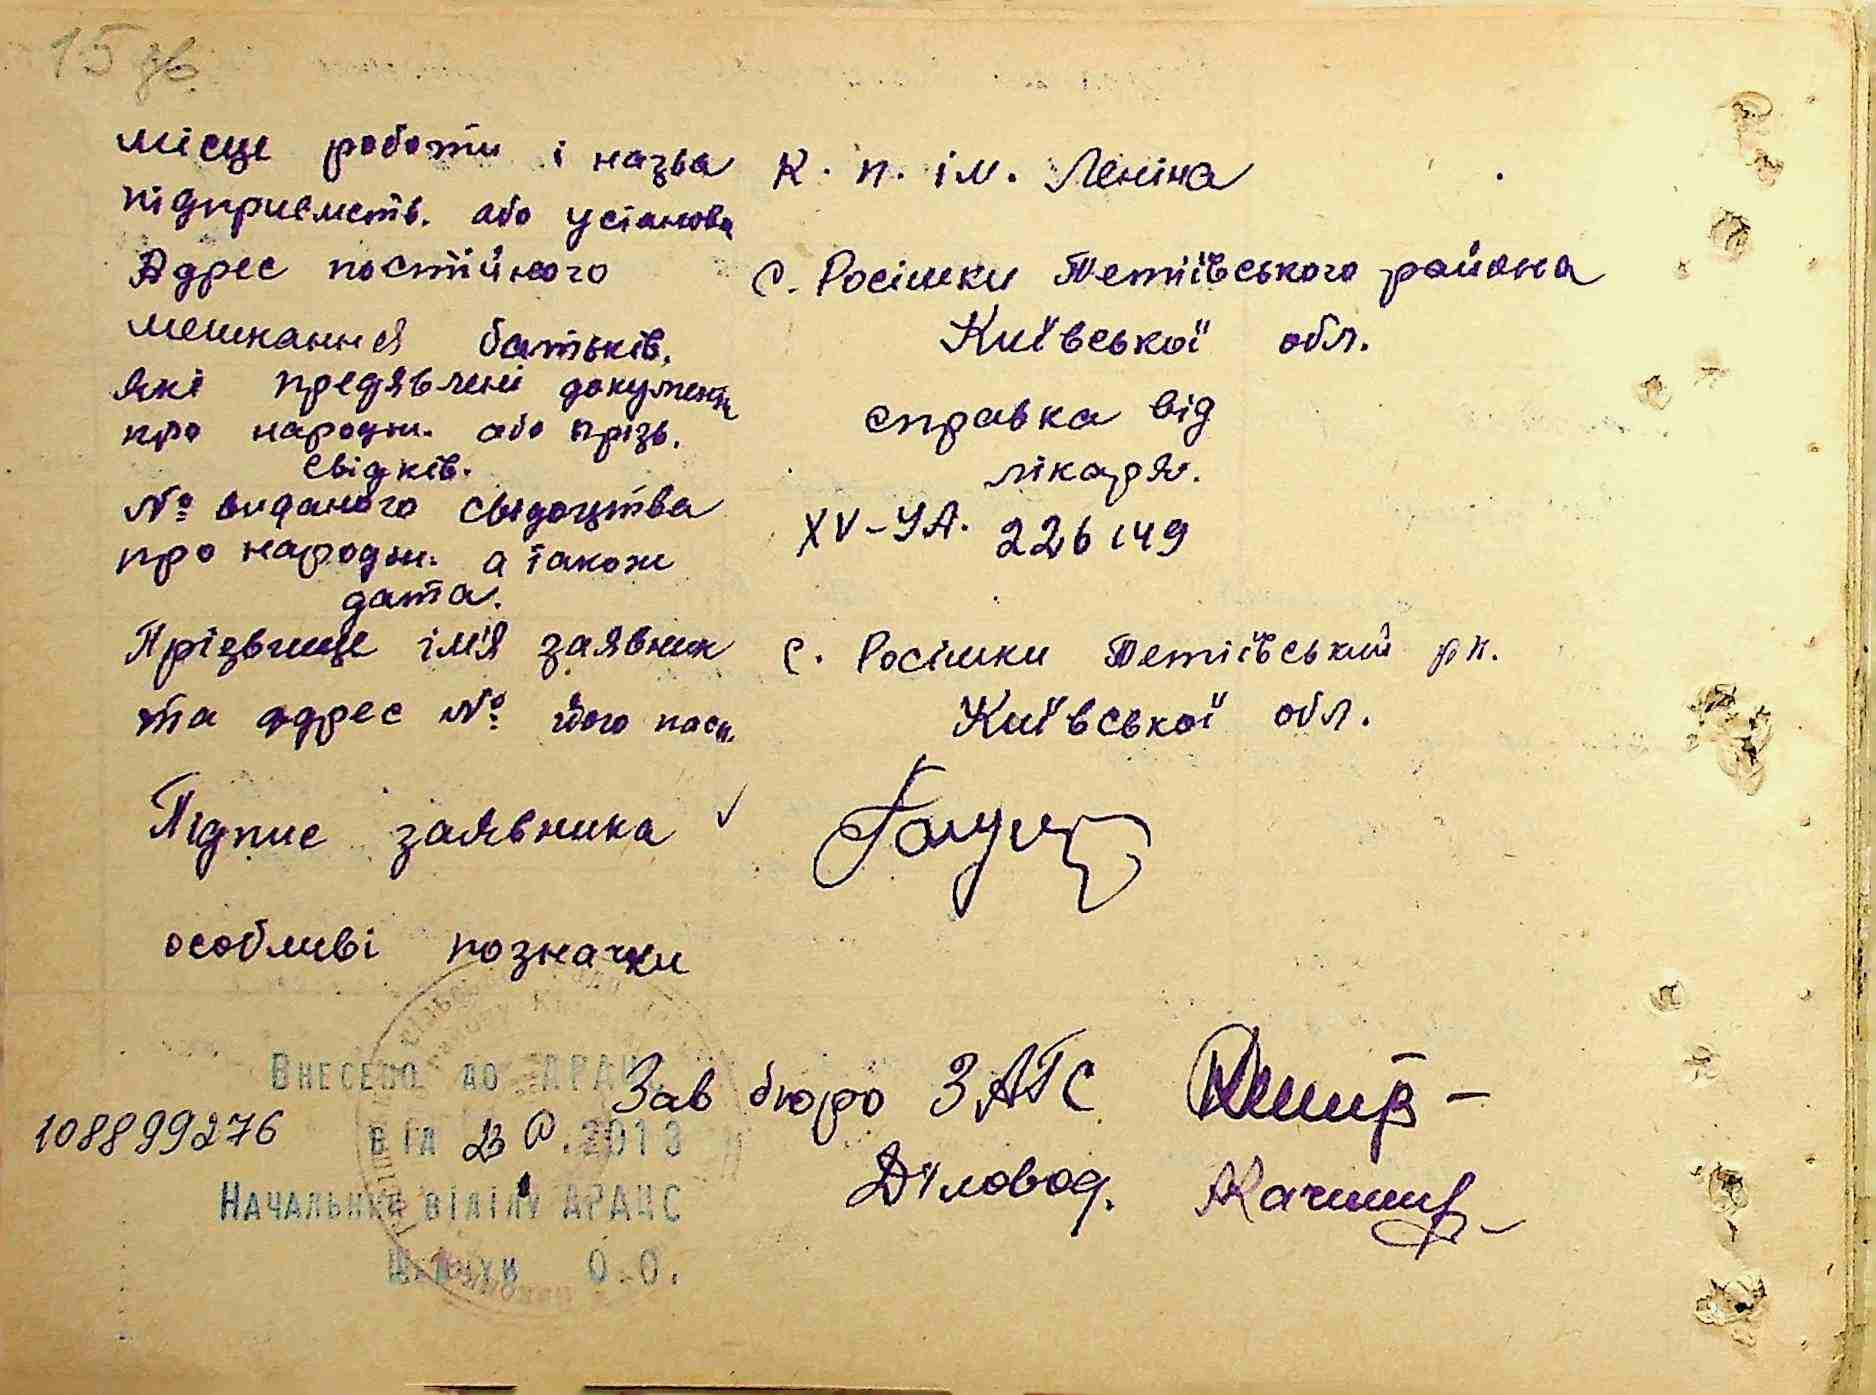 15 зв.
місце роботи і назва К. п. ім. Леніна
підприємств. або установа
Адрес постійного с. Росішки Тетіївського района
мешкання батьків. Київської обл.
які предявлені документи справка від
про народж. або прізв.
свідків. лікаря.
№ виданого свідоцтва XV-УА. 226149
про народж. а також
дата.
Прізвище ім'я заявник с. Росішки Тетіївський рн.
та адрес № його пасп. Київської обл.
Підпис заявника ✓
особливі позначки
Внесено до АРАЦС Зав бюро ЗАГС
108899276 від 2013
Діловод.
Начальник відділу АРАЦС
О.О.